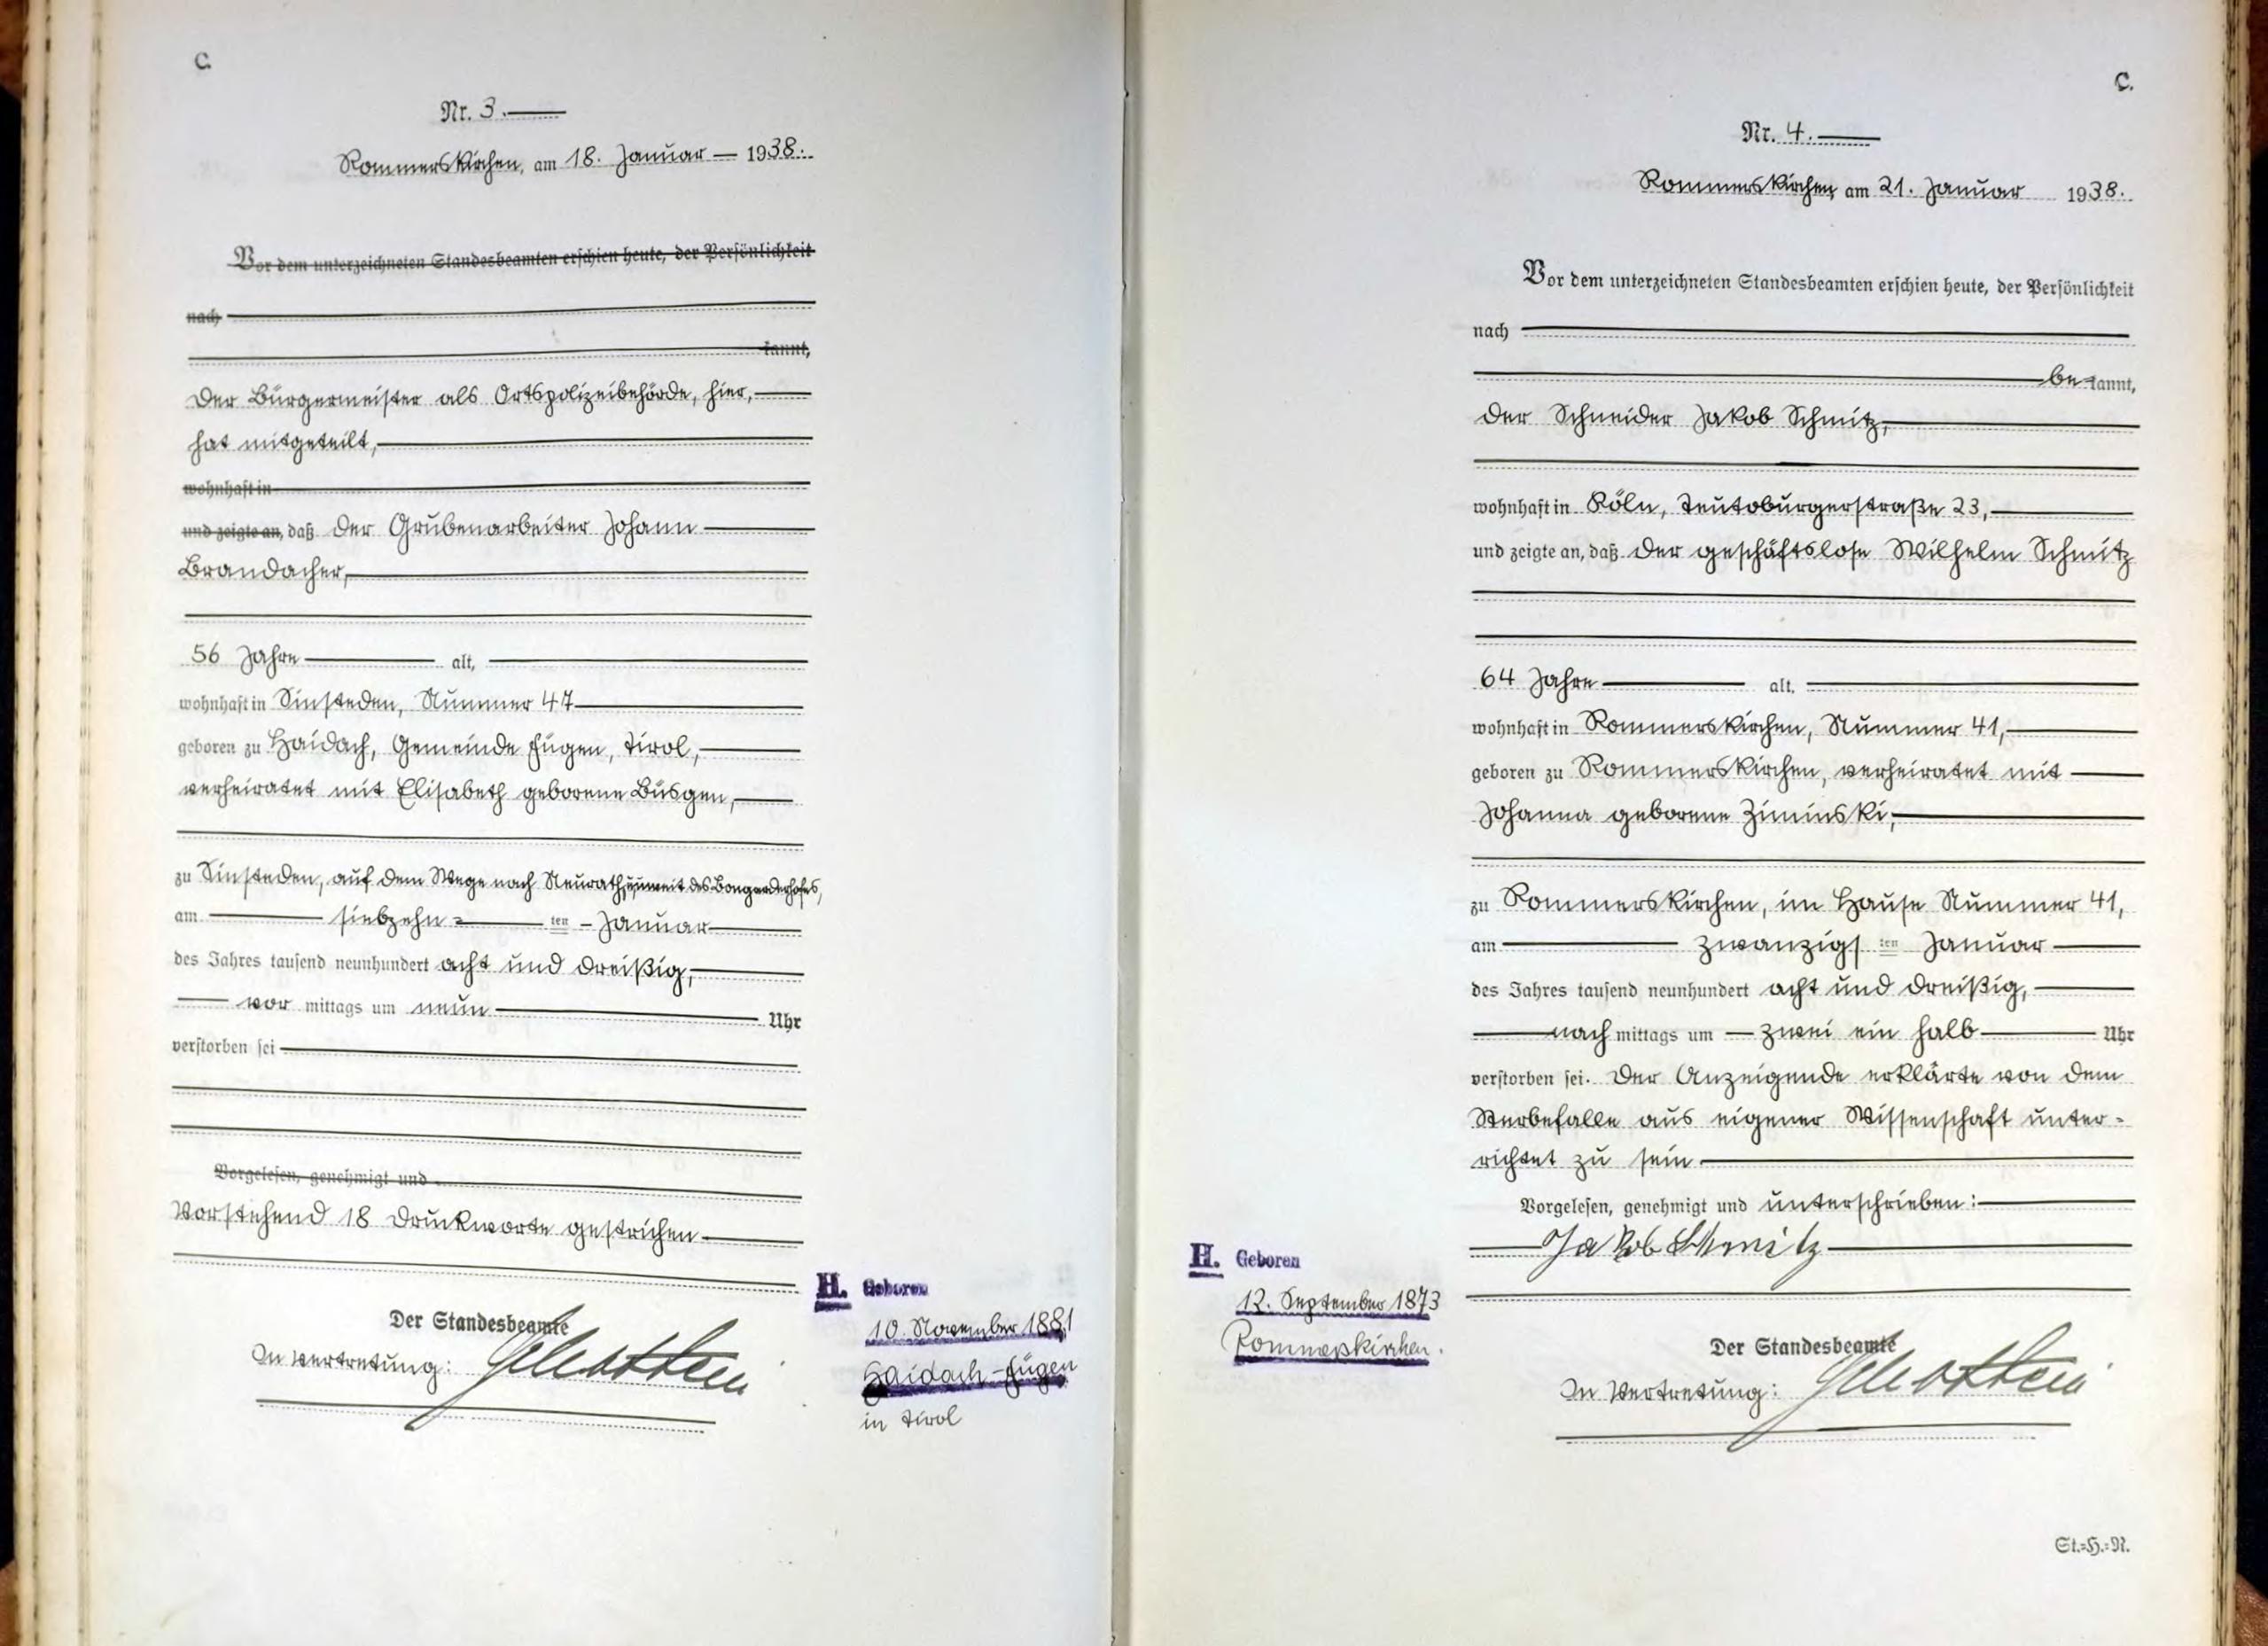 C.
Nr. 3.
Rommerskirchen, am 18. Januar 1938.
Vor dem unterzeichneten Standesbeamten erschien heute, der Persönlichkeit
nach
kannt,
der Bürgermeister als Ortspolizeibehörde, hier,
hat mitgeteilt,
wohnhaft in
und zeigte an, daß der Grubenarbeiter Johann
Brandacher,
56 Jahre alt,
wohnhaft in Sinsteden, Nummer 47
geboren zu Haidach, Gemeinde Fügen, Tirol,
verheiratet mit Elisabeth geborene Büsgen,
zu Sinsteden, auf dem Wege nach Neurath, unweit des Bongarderhofes,
am siebzehn ten Januar
des Jahres tausend neunhundert acht und dreißig,
vor mittags um neun Uhr
verstorben sei
Vorgelesen, genehmigt und
Vorstehend 18 Druckworte gestrichen
Der Standesbeamte
In Vertretung:
H. Geboren
10. November 1881
Haidach-Fügen
in Tirol
C.
Nr. 4.
Rommerskirchen, am 21. Januar 1938.
Vor dem unterzeichneten Standesbeamten erschien heute, der Persönlichkeit
nach
be kannt,
der Schneider Jakob Schmitz,
wohnhaft in Köln, Teutoburgerstraße 23,
und zeigte an, daß der geschäftslose Wilhelm Schmitz
64 Jahre alt,
wohnhaft in Rommerskirchen, Nummer 41,
geboren zu Rommerskirchen, verheiratet mit
Johanna geborene Ziminski,
zu Rommerskirchen, im Hause Nummer 41,
am zwanzigs ten Januar
des Jahres tausend neunhundert acht und dreißig,
nach mittags um zwei ein halb Uhr
verstorben sei. Der Anzeigende erklärte von dem
Sterbefalle aus eigener Wissenschaft unter-
richtet zu sein
Vorgelesen, genehmigt und unterschrieben:
Jakob Schmitz
H. Geboren
12. September 1873
Rommerskirchen.
Der Standesbeamte
In Vertretung:
St.=H.=N.